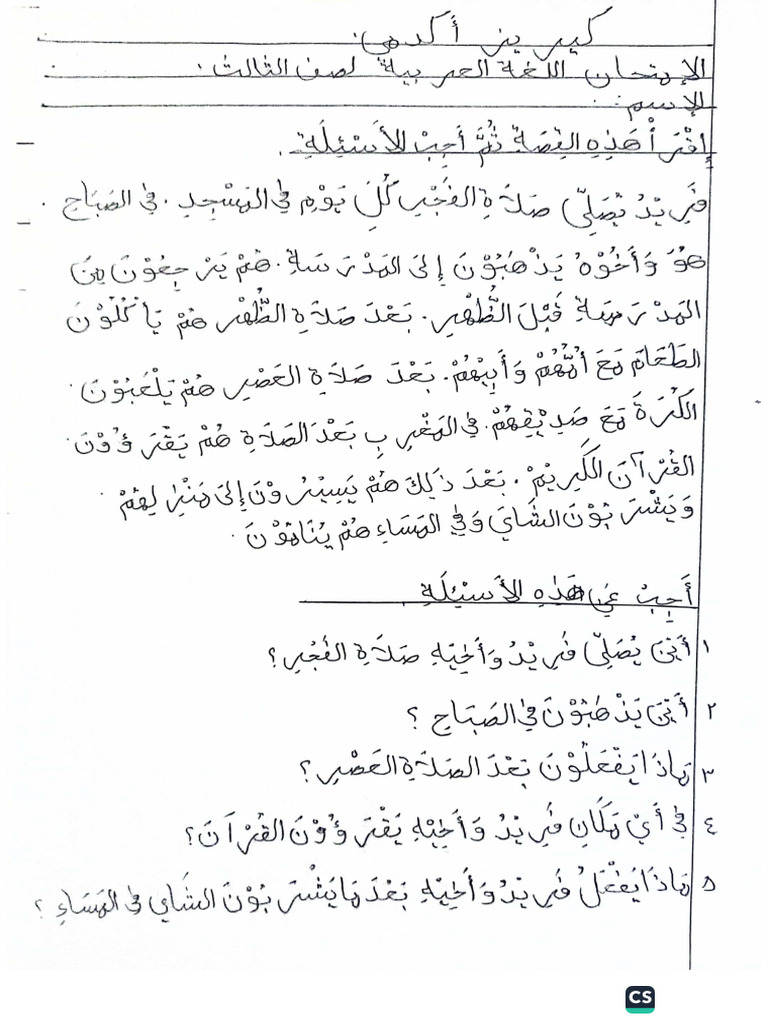 كيبريز أكدمي.
الإمتحان اللغة العربية لصف الثالث.
الإسم:
إِقْرَأْ هَذِهِ القِصَةَ ثُمَّ أَجِبْ الأَسْئِلَةِ.
فَرِيْدُ يُصَلِّي صَلَاةِ الفَجْرِ كُلَّ يَوْمِ فِي المَسْجِدِ. فِي الصَبَاحِ
هُوَ وَأَخُوْهُ يَذْهَبُوْنَ إِلَى المَدْرَسَةِ. هُمْ يَرْجِعُوْنَ مِنَ
المَدْرَسَةِ قَبْلَ الظُّهْرِ. بَعْدَ صَلَاةِ الظُّهْرِ هُمْ يَأْكُلُوْنَ
الطَعَامَ مَعَ أُمُّهُمْ وَأَبِيْهُمْ. بَعْدَ صَلَاةِ العَصْرِ هُمْ يَلْعَبُوْنَ
الكُرَةَ مَعَ صَدِيْقِهُمْ. فِي المَغْرِبِ بَعْدَ الصَلَاةِ هُمْ يَقْرَؤُوْنَ
القُرْآنَ الكَرِيْمْ. بَعْدَ ذَلِكَ هُمْ يَسِيْرُوْنَ إِلَى مَنْزِلِهُمْ
وَيَشْرَبُوْنَ الشَايَ وَفِي المَسَاءِ هُمْ يُنَامُوْنَ.
أَجِبْ عَنْ هَذِهِ الأَسْئِلَةِ
١ أَيْنَ يُصَلِّي فَرِيْدُ وَأَخِيْهِ صَلَاةِ الفَجْرِ؟
٢ أَيْنَ يَذْهَبُوْنَ فِي الصَبَاحِ؟
٣ مَاذَا يَفْعَلُوْنَ بَعْدَ الصَلَاةِ العَصْرِ؟
٤ فِي أَيْ مَكَانِ فَرِيْدُ وَأَخِيْهِ يَقْرَؤُوْنَ القُرْآنَ؟
٥ مَاذَا يَفْعَلُ فَرِيْدُ وَأَخِيْهِ بَعْدَ مَا يَشْرَبُوْنَ الشَاي فِي المَسَاءِ؟
CS